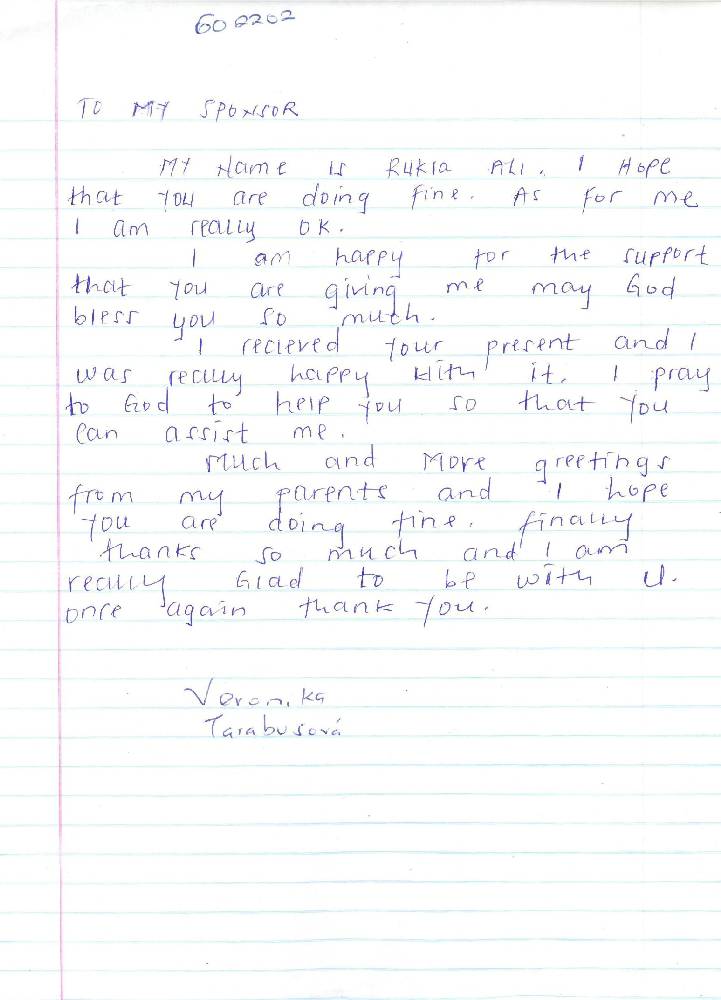 602202
TO MY SPONSOR
MY Name is Rukia ALI. I Hope
that you are doing fine. As for me
I am really OK.
I am happy for the support
that you are giving me may God
bless you so much.
I recieved your present and I
was really happy with it. I pray
to God to help you so that you
can assist me.
Much and More greetings
from my parents and I hope
you are doing fine. finally
thanks so much and I am
really Glad to be with U.
once again thank you.
Veronika
Tarabusová